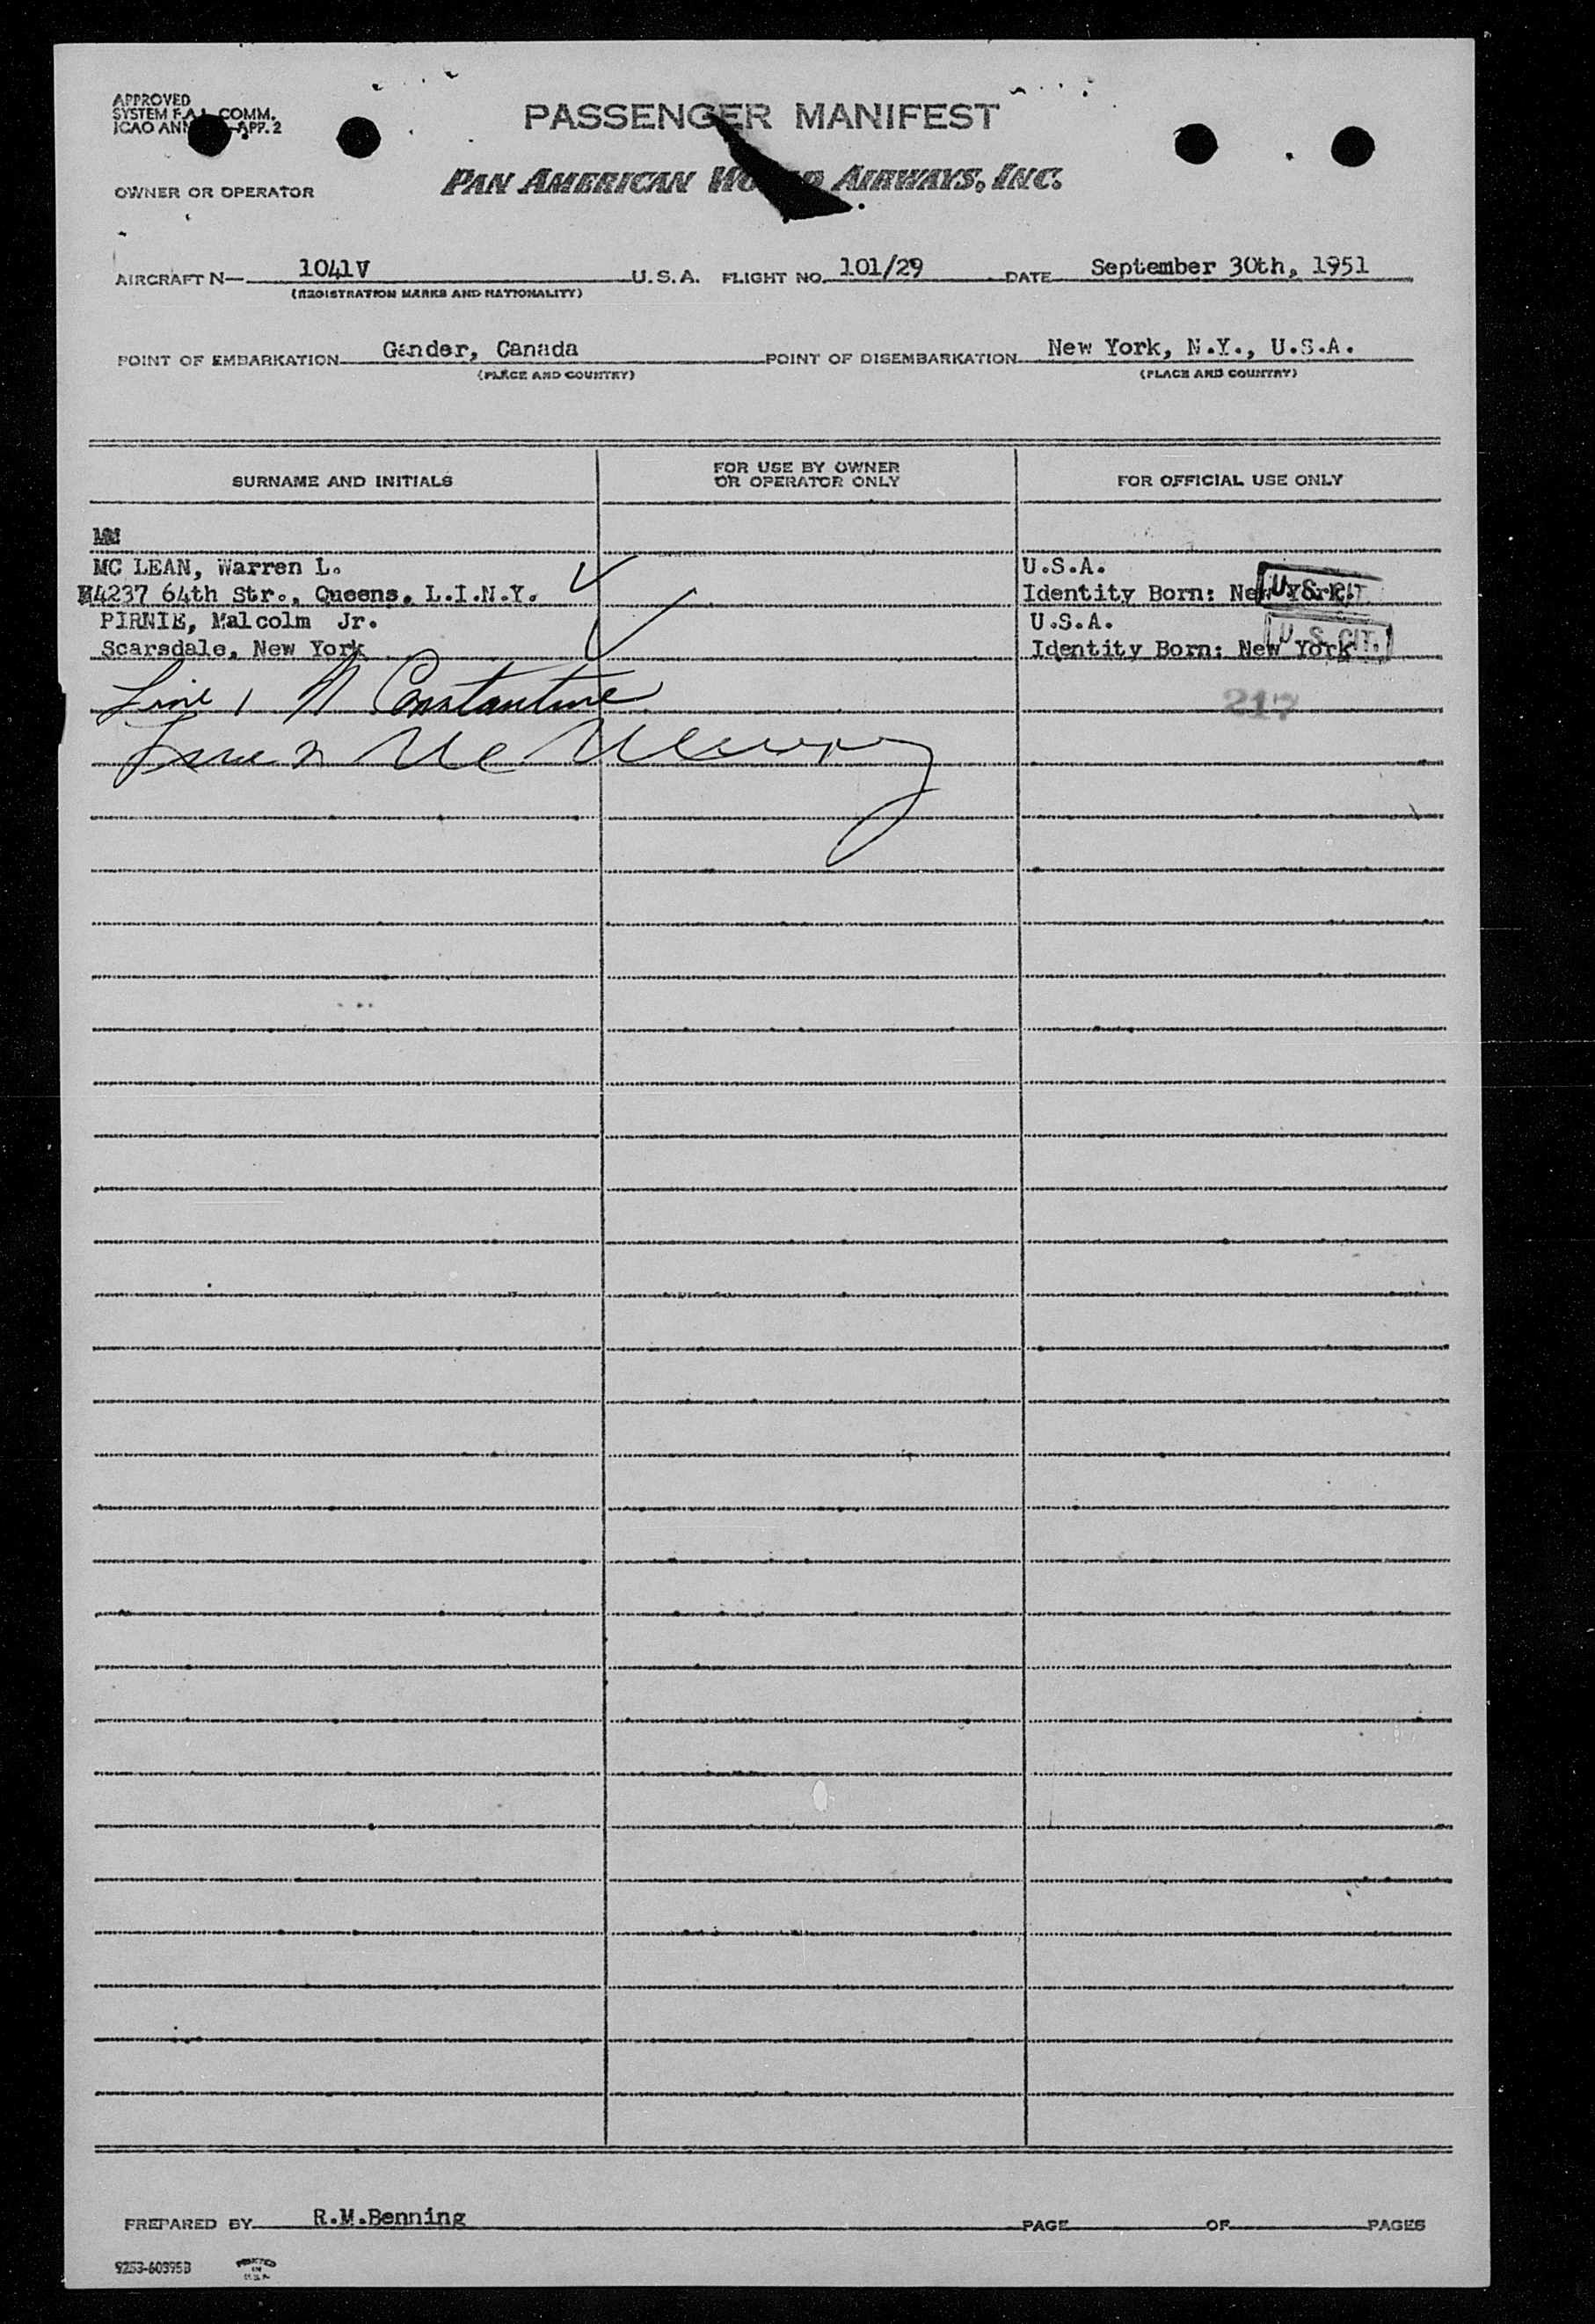 APPROVED
SYSTEM F.A.L. COMM.
ICAO ANN APP. 2
PASSENGER MANIFEST
OWNER OR OPERATOR
PAN AMERICAN WORLD AIRWAYS, INC.
AIRCRAFT N— 1041V U.S.A. FLIGHT NO. 101/29 DATE September 30th, 1951
(REGISTRATION MARKS AND NATIONALITY)
POINT OF EMBARKATION Gander, Canada POINT OF DISEMBARKATION New York, N.Y., U.S.A.
(PLACE AND COUNTRY) (PLACE AND COUNTRY)
SURNAME AND INITIALS FOR USE BY OWNER OR OPERATOR ONLY FOR OFFICIAL USE ONLY
MC LEAN, Warren L. U.S.A.
4237 64th Str., Queens. L.I.N.Y. Identity Born: New York. U.S. CIT.
PIRNIE, Malcolm Jr. U.S.A.
Scarsdale, New York Identity Born: New York U.S. CIT.
Line 1 N Constantine 217
PREPARED BY R.M.Benning PAGE OF PAGES
9253-60395B PRINTED IN U.S.A.